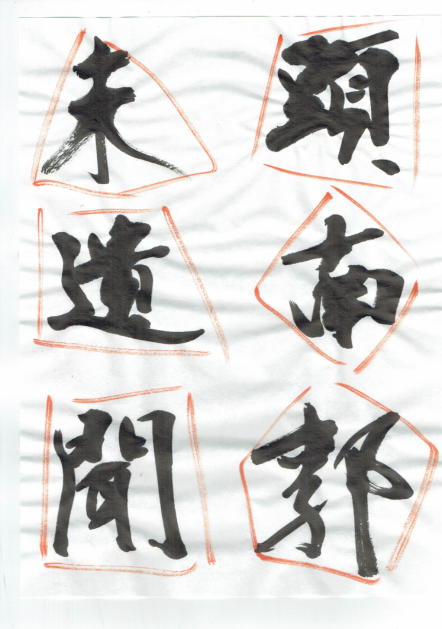 頭南郭
未遺聞